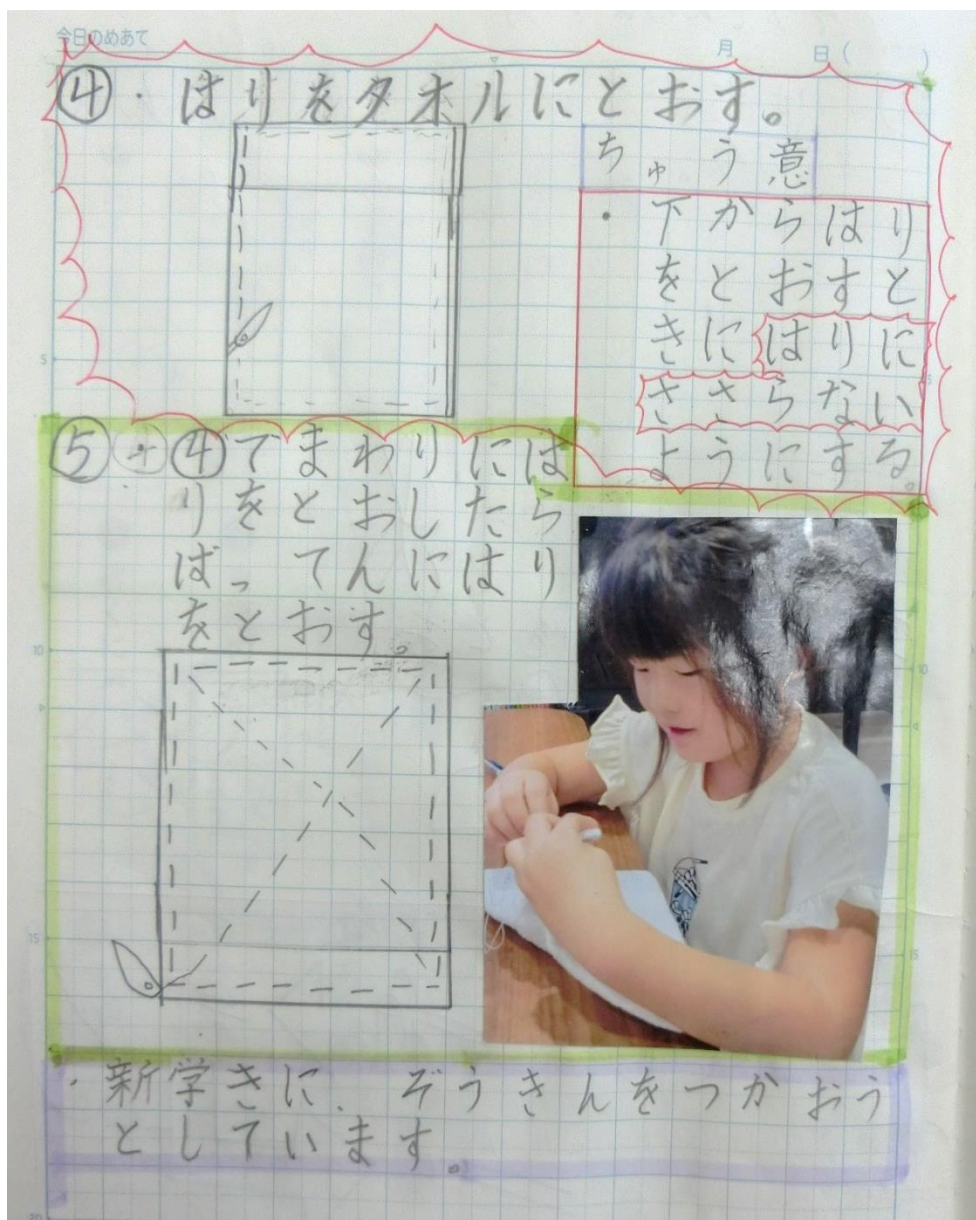 今日のめあて 月 日( )
④・はりをタオルにとおす。
ちゅう意
・下からはり
をとおすと
きにはりに
ささらない
ようにする。
5
⑤・④でまわりには
りをとおしたら
ばってんにはり
をとおす。
10
10
15
15
・新学きに、ぞうきんをつかおう
としています。
20